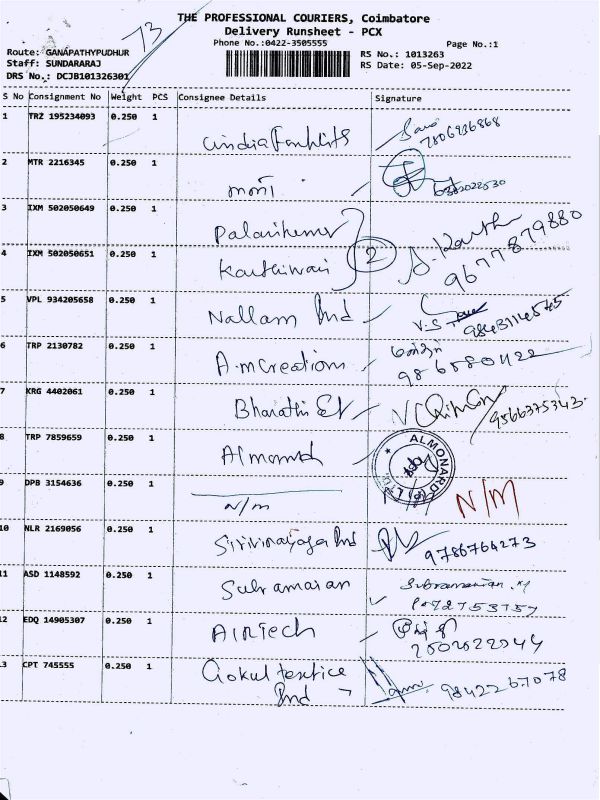 THE PROFESSIONAL COURIERS, Coimbatore
Delivery Runsheet - PCX
73
Phone No.:0422-3505555
Page No.:1
Route: GANAPATHYPUDHUR
RS No.: 1013263
Staff: SUNDARARAJ
RS Date: 05-Sep-2022
DRS No.: DCJB101326301
S No Consignment No Weight PCS Consignee Details Signature
1 TRZ 195234093 0.250 1
2 MTR 2216345 0.250 1
மணி
3 IXM 502050649 0.250 1
Palanikumar
2
4 IXM 502050651 0.250 1
A. Karthi
9677879880
5 VPL 934205658 0.250 1
Nallam Ind
6 TRP 2130782 0.250 1
A.m Creations
7 KRG 4402061 0.250 1
9566375343
8 TRP 7859659 0.250 1
Almonard
ALMONARD (P) LTD
9 DPB 3154636 0.250 1
N/M N/M
10 NLR 2169056 0.250 1
9786764273
11 ASD 1148592 0.250 1
Subramanian
12 EDQ 14905307 0.250 1
AIRTECH
13 CPT 745555 0.250 1
Gokul textice
Ind 9842267078